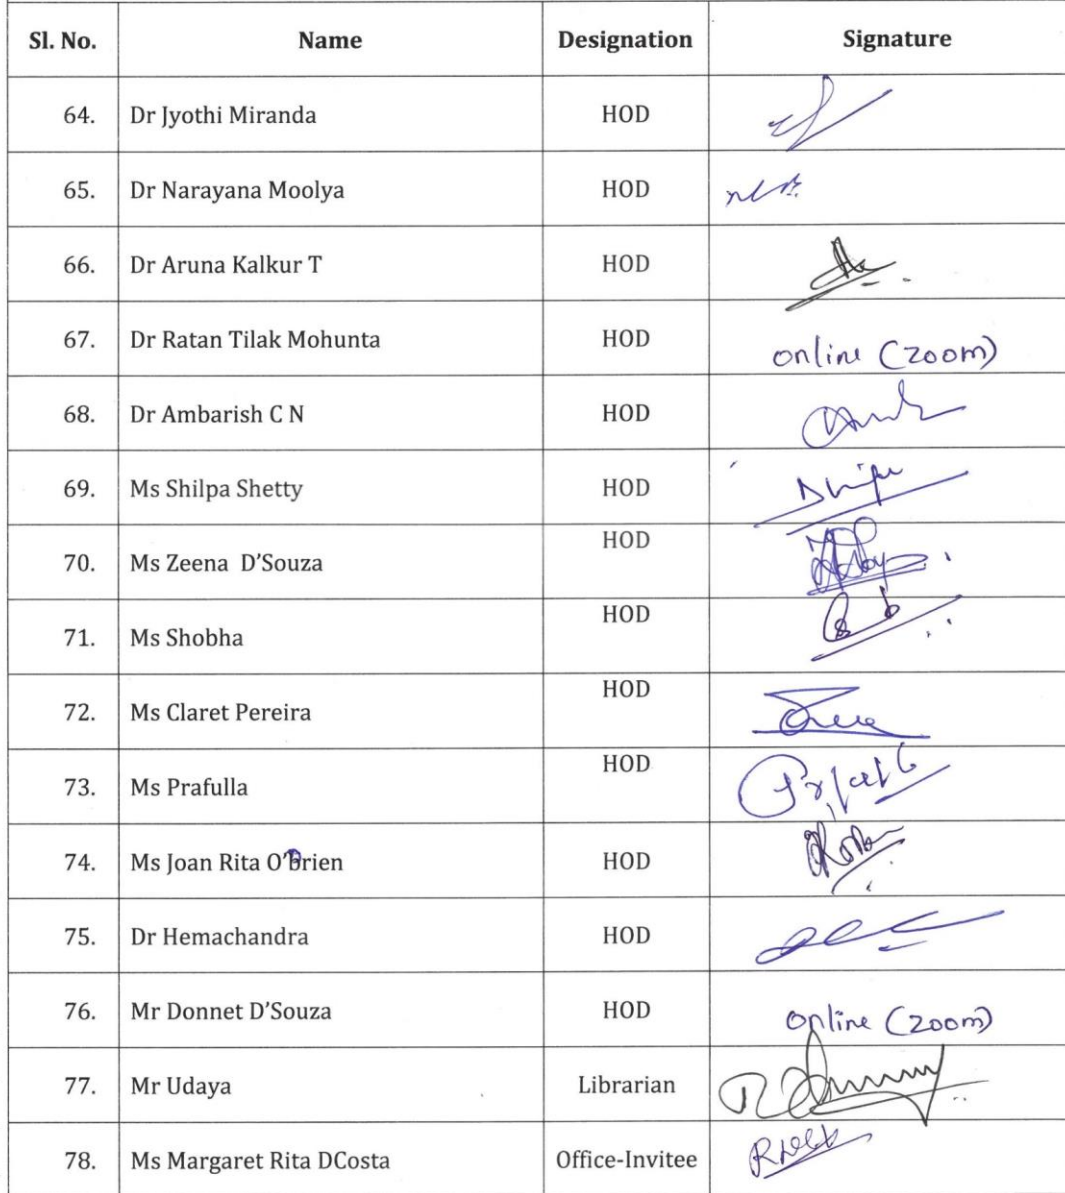 Sl. No. Name Designation Signature
64. Dr Jyothi Miranda HOD
65. Dr Narayana Moolya HOD
66. Dr Aruna Kalkur T HOD
67. Dr Ratan Tilak Mohunta HOD online (zoom)
68. Dr Ambarish C N HOD
69. Ms Shilpa Shetty HOD
70. Ms Zeena D'Souza HOD
71. Ms Shobha HOD
72. Ms Claret Pereira HOD
73. Ms Prafulla HOD
74. Ms Joan Rita O'Brien HOD
75. Dr Hemachandra HOD
76. Mr Donnet D'Souza HOD online (zoom)
77. Mr Udaya Librarian
78. Ms Margaret Rita DCosta Office-Invitee